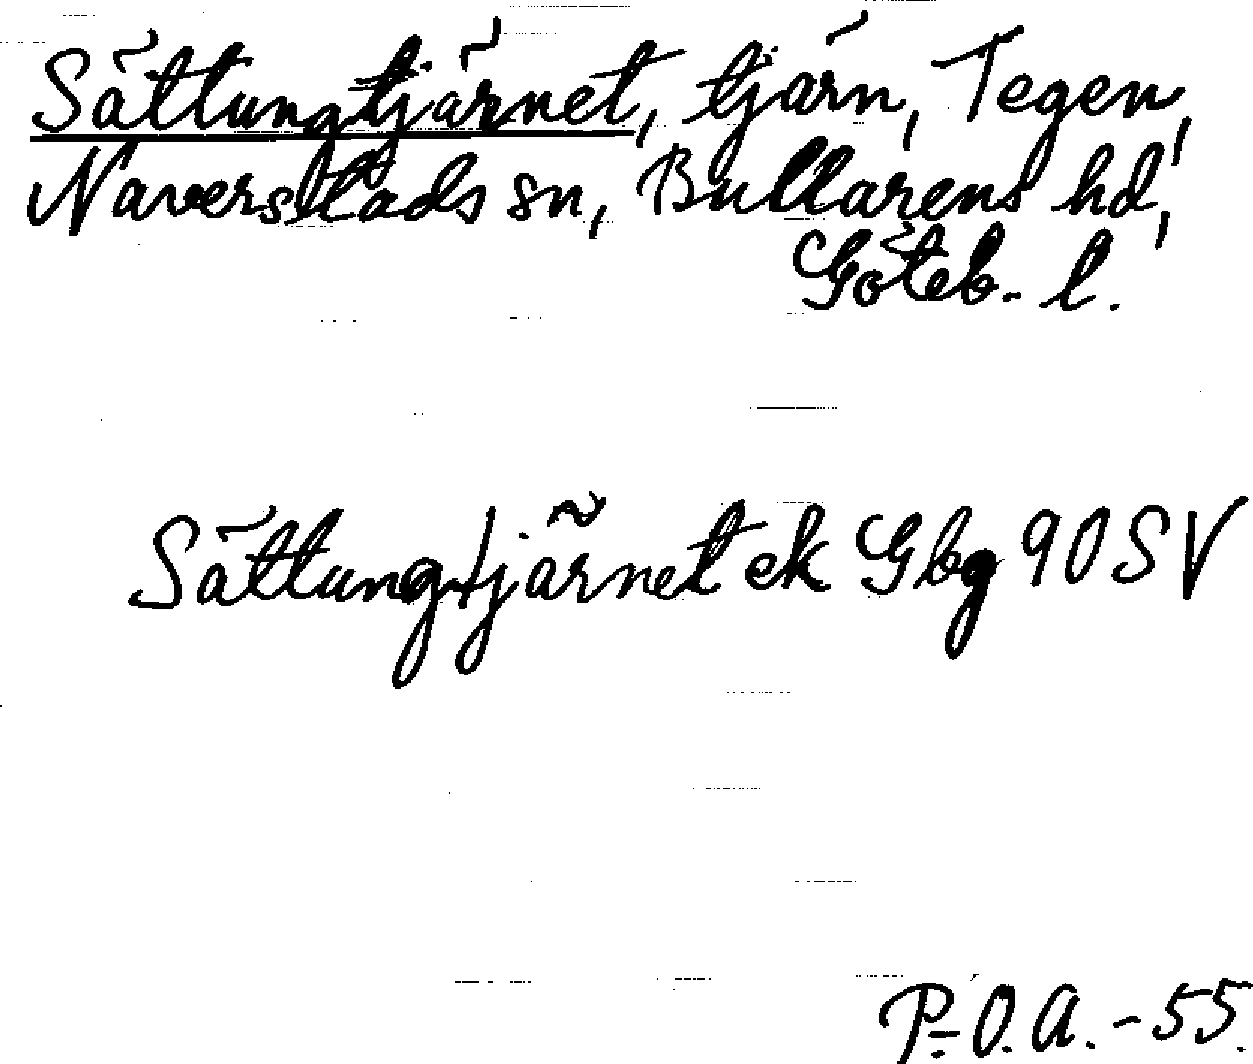 Sättungtjärnet, tjärn, Tegen,
Naverstads sn, Bullarens hd,
Göteb. l.
Sättungtjärnet ek Gbg 90 SV
P.-O. A. -55.